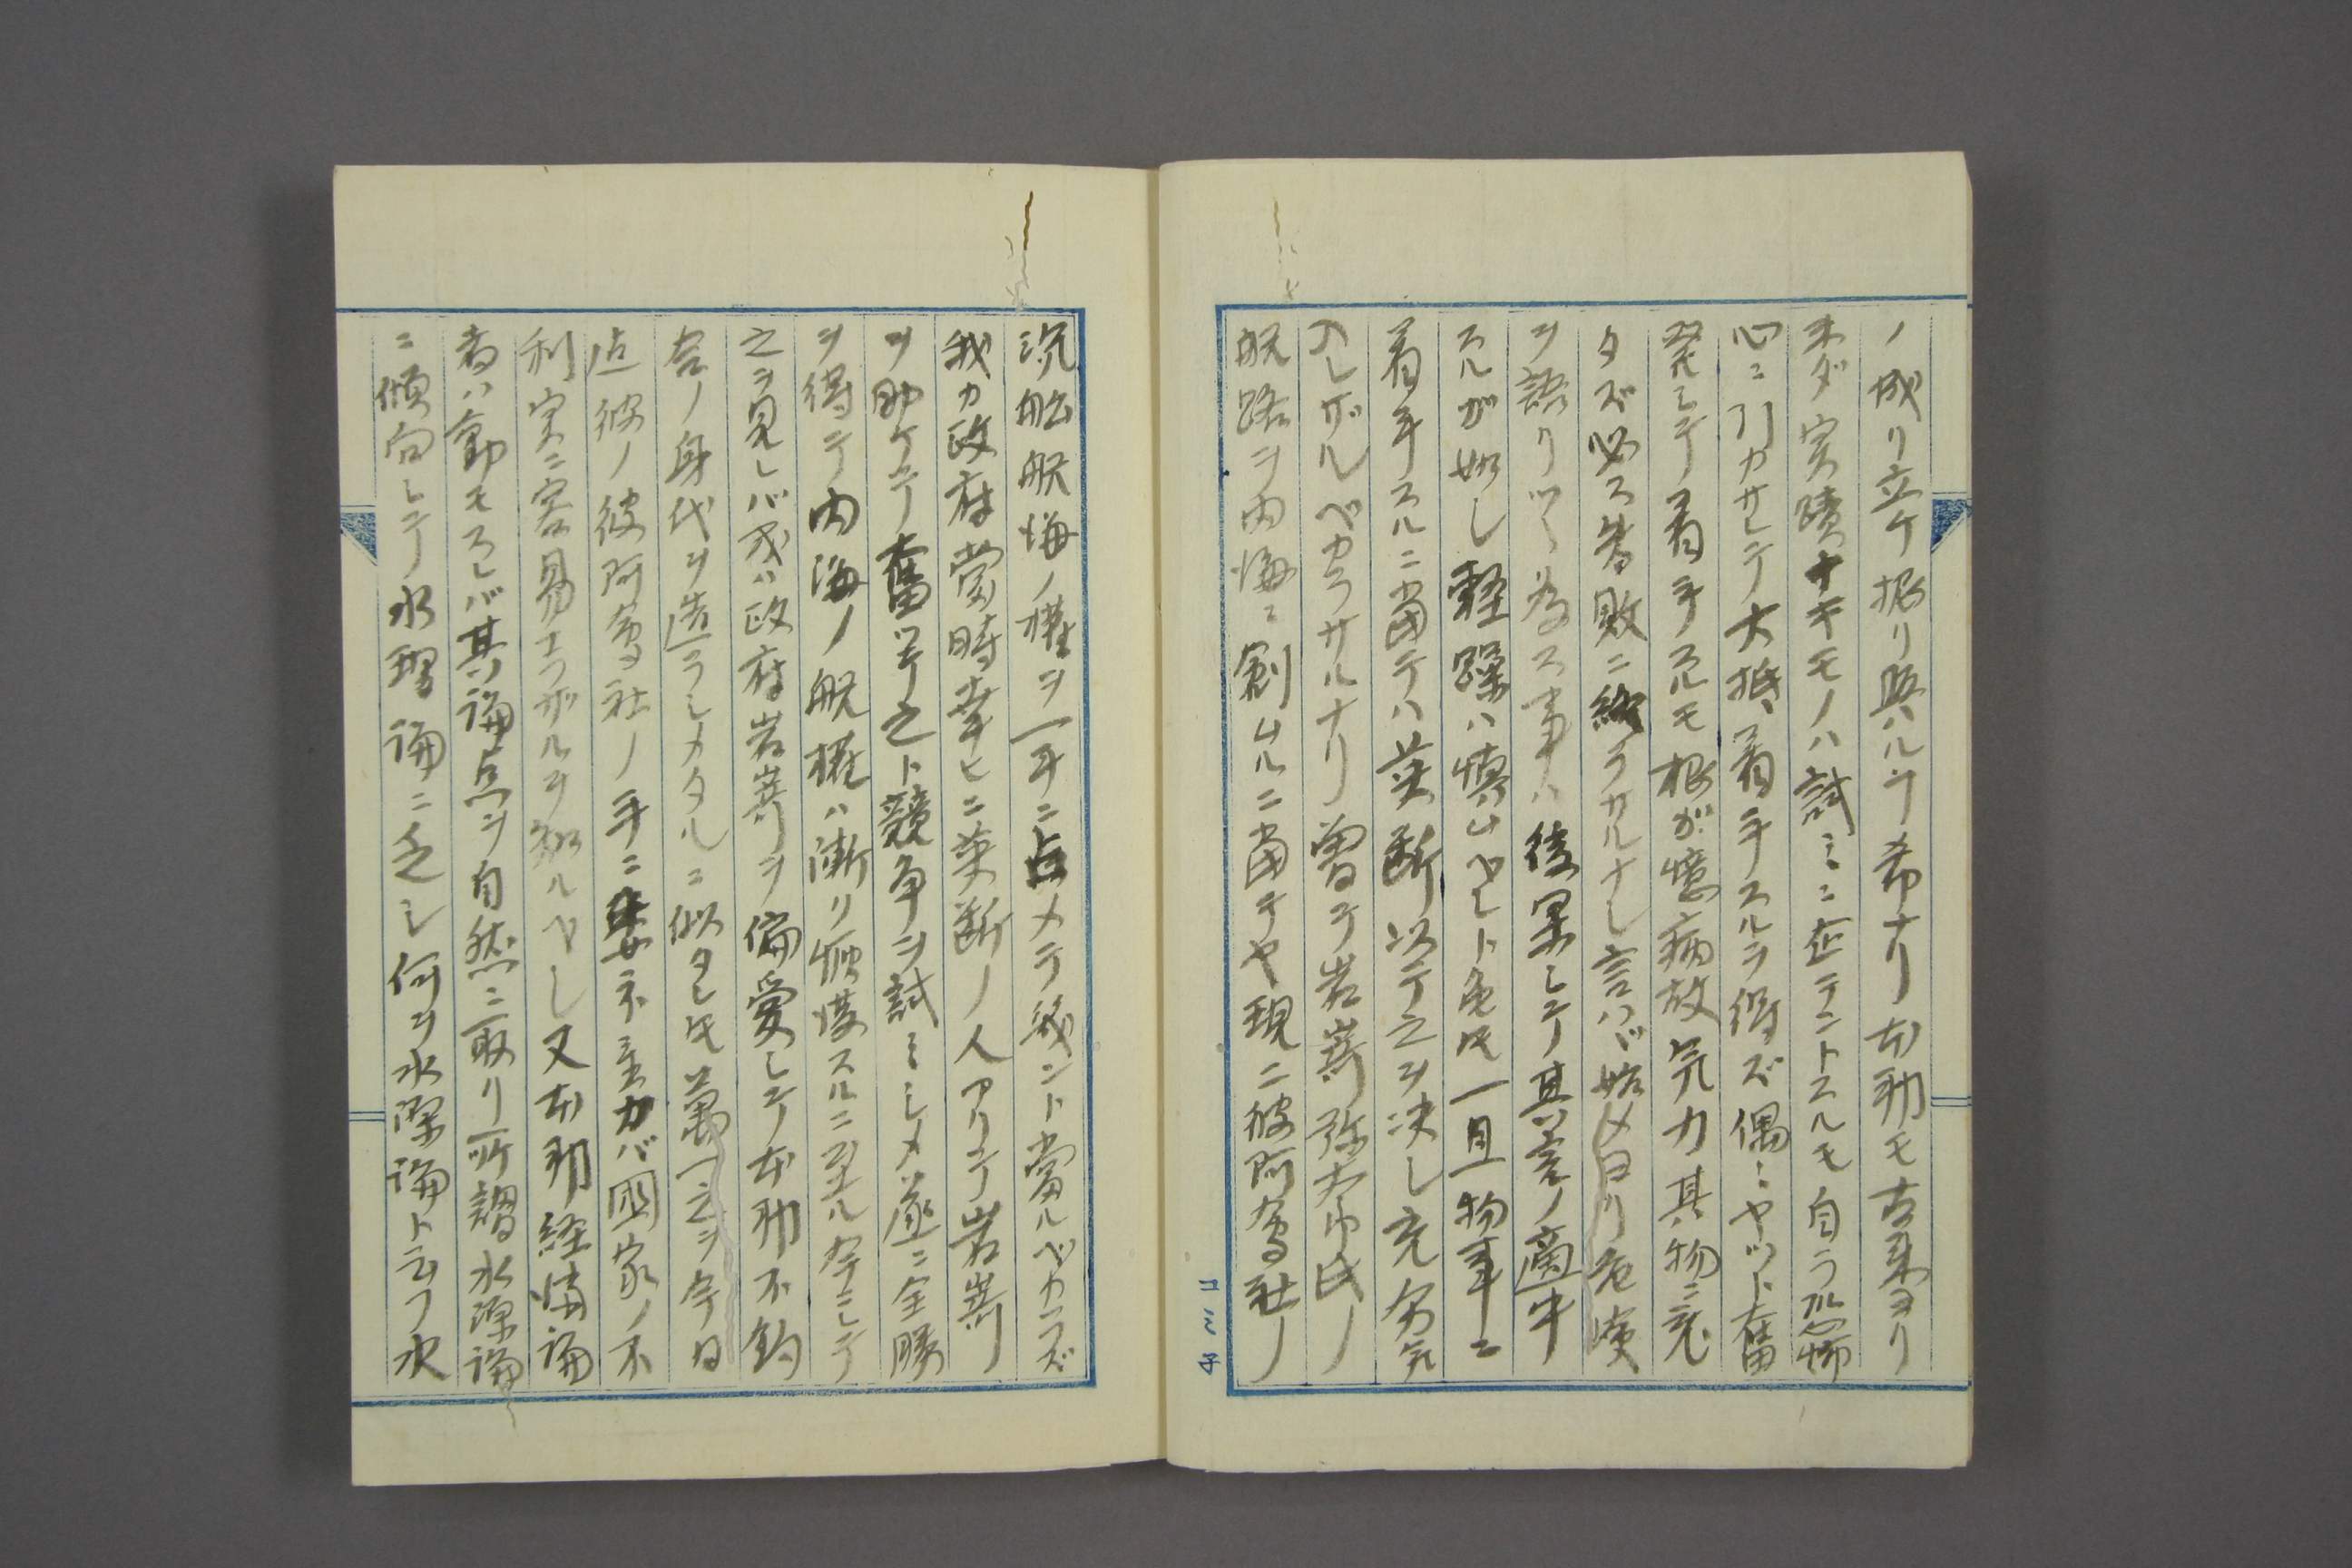 ノ成リ立ケ振リ興ハルヿ希ナリ本邦モ古来ヨリ
未ダ実蹟ナキモノハ試ミニ企テントスルモ自ラ恐怖
心ニ引カサレテ大抵着手スルヲ得ズ偶ミヤット奮
発シテ着手スルモ根ガ憶病故気力其物ニ充
タズ必ス失敗ニ終ラサルナシ言ハヾ始メヨリ危険
ヲ語リツヽ為ス事ハ後果シテ其言ノ適中
スルガ如シ軽躁ハ慎ムヘシト虽モ一旦物事ニ
着手スルニ当テハ英断以テ之ヲ决シ充分気
入レザルベカラサルナリ曽テ岩嵜弥太郎氏ノ
航路ヲ内海ニ創ムルニ当テヤ現ニ彼阿府社ノ
コミ子
汽舩航海ノ権ヲ一手ニ占メテ殆ント當ルベカラズ
我カ政府當時幸ヒニ英断ノ人アリテ岩嵜
ヲ助ケテ奮ツテ之ト競争ヲ試ミシメ遂ニ全勝
ヲ得テ内海ノ航権ハ漸リ恢復スルニ至ル今ニシテ
之ヲ見レバ或ハ政府岩嵜ヲ偏愛シテ本邦不釣
合ノ身代ヲ造ラシメタルニ似タレ𪜈萬一之ヲ今日
迠彼ノ彼阿府社ノ手ニ委ネ置カバ国家ノ不
利実ニ容易ナラザルヲ知ルヘシ又本邦経済論
者ハ動モスレバ其論点ヲ自然ニ取リ所謂水源論
ニ傾向シテ水理論ニ乏シ何ヲ水源論ト云フ水